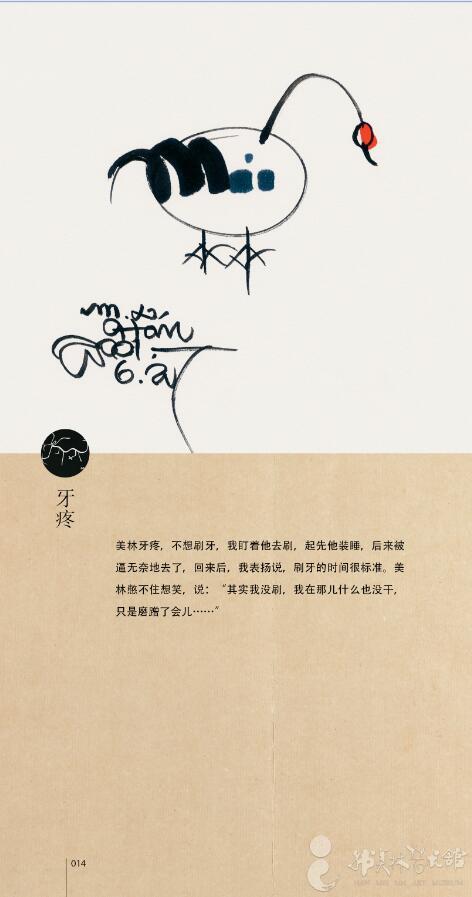 m.L.
Han
2001.
6.21
牙疼
美林牙疼，不想刷牙，我盯着他去刷，起先他装睡，后来被
逼无奈地去了，回来后，我表扬说，刷牙的时间很标准。美
林憋不住想笑，说：“其实我没刷，我在那儿什么也没干，
只是磨蹭了会儿……”
014
韩美林艺术馆
HAN MEI LIN ART MUSEUM